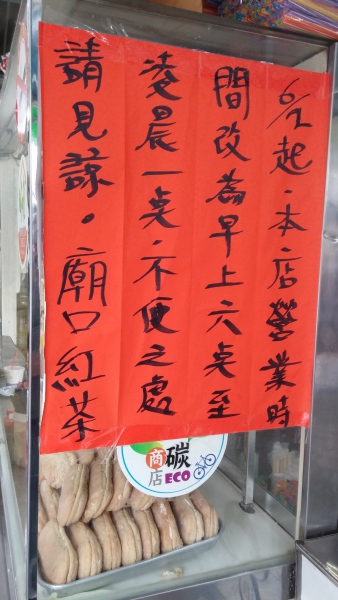 6/1起·本店營業時
間改為早上六點至
凌晨一點·不便之處
請見諒。廟口紅茶
商碳
店ECO